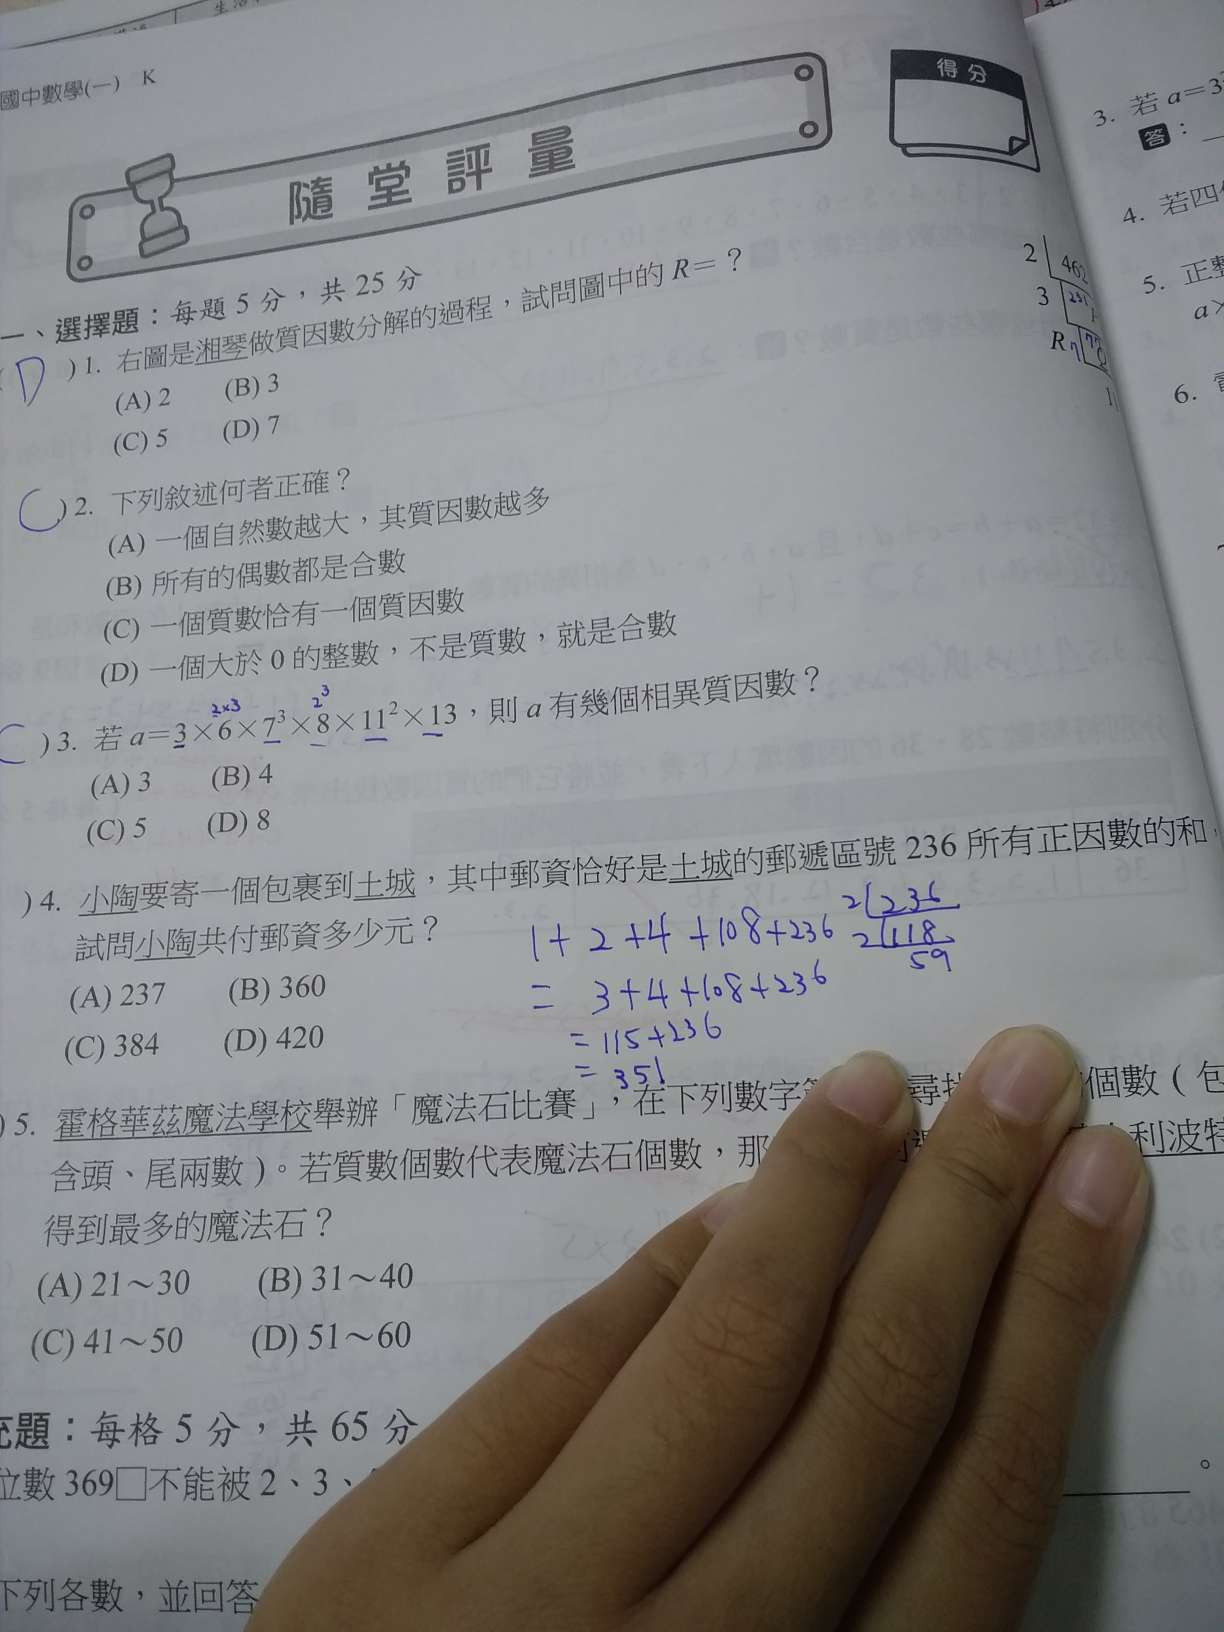 國中數學(一) K
隨堂評量
得分
一、選擇題：每題 5 分，共 25 分
(D) 1. 右圖是湘琴做質因數分解的過程，試問圖中的 R=？
(A) 2 (B) 3
(C) 5 (D) 7
2 462
3 231
R 7 77
11
(C) 2. 下列敘述何者正確？
(A) 一個自然數越大，其質因數越多
(B) 所有的偶數都是合數
(C) 一個質數恰有一個質因數
(D) 一個大於 0 的整數，不是質數，就是合數
2×3 2³
C ) 3. 若 a=3×6×7³×8×11²×13，則 a 有幾個相異質因數？
(A) 3 (B) 4
(C) 5 (D) 8
) 4. 小陶要寄一個包裹到土城，其中郵資恰好是土城的郵遞區號 236 所有正因數的和，
試問小陶共付郵資多少元？
(A) 237 (B) 360
(C) 384 (D) 420
1+2+4+108+236
= 3+4+108+236
= 115+236
= 351
2 236
2 118
59
) 5. 霍格華茲魔法學校舉辦「魔法石比賽」，在下列數字 尋 個數（包
含頭、尾兩數）。若質數個數代表魔法石個數，那 利波特
得到最多的魔法石？
(A) 21～30 (B) 31～40
(C) 41～50 (D) 51～60
充題：每格 5 分，共 65 分
位數 369□不能被 2、3、
下列各數，並回答
3. 若 a=3
答：
4. 若四
5. 正整
a×
6.